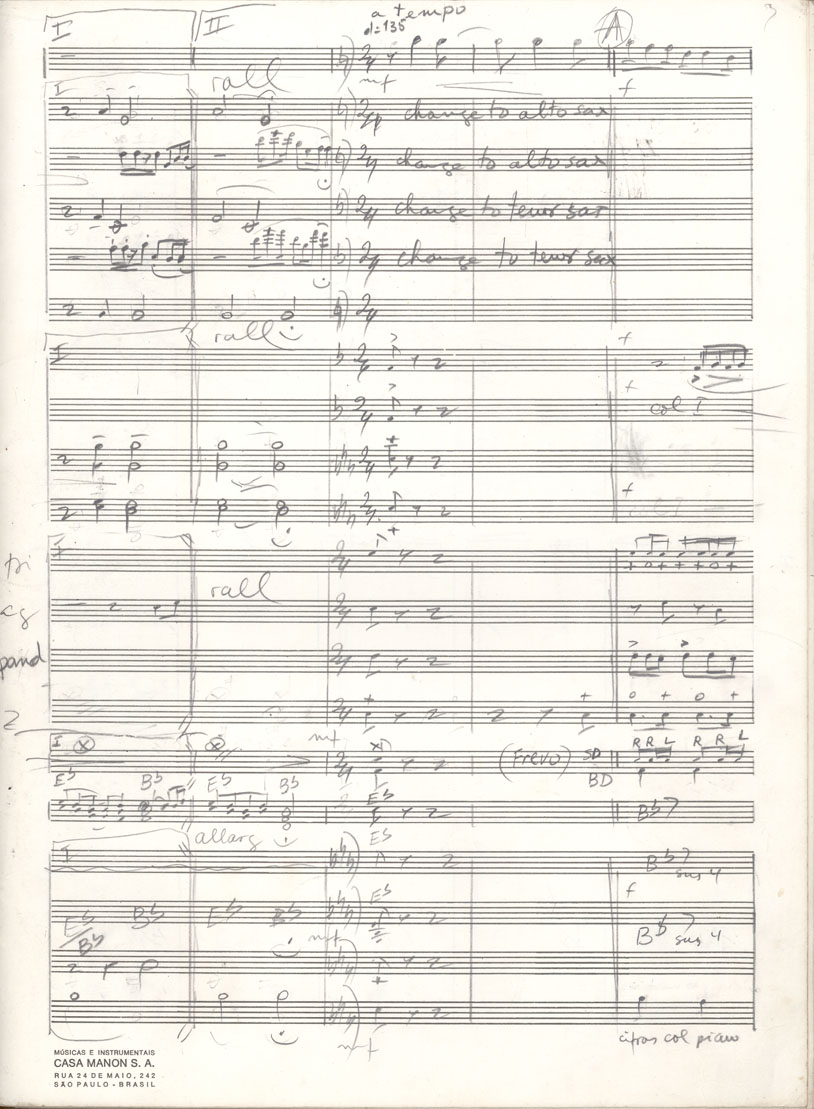 I II a tempo A 3
♩=135
I rall mf f
change to alto sax
change to alto sax
change to tenor sax
change to tenor sax
rall
I f
f
col I
f
I
rall
pand
mf
I (Frevo) SD R R L R R L
BD
E♭ B♭ E♭ B♭ E♭
B♭7
allarg E♭
I B♭7 sus 4
E♭ f
E♭/B♭ B♭ E♭ B♭ B♭7 sus 4
mf
mf cifras col piano
MÚSICAS E INSTRUMENTAIS
CASA MANON S. A.
RUA 24 DE MAIO, 242
SÃO PAULO - BRASIL